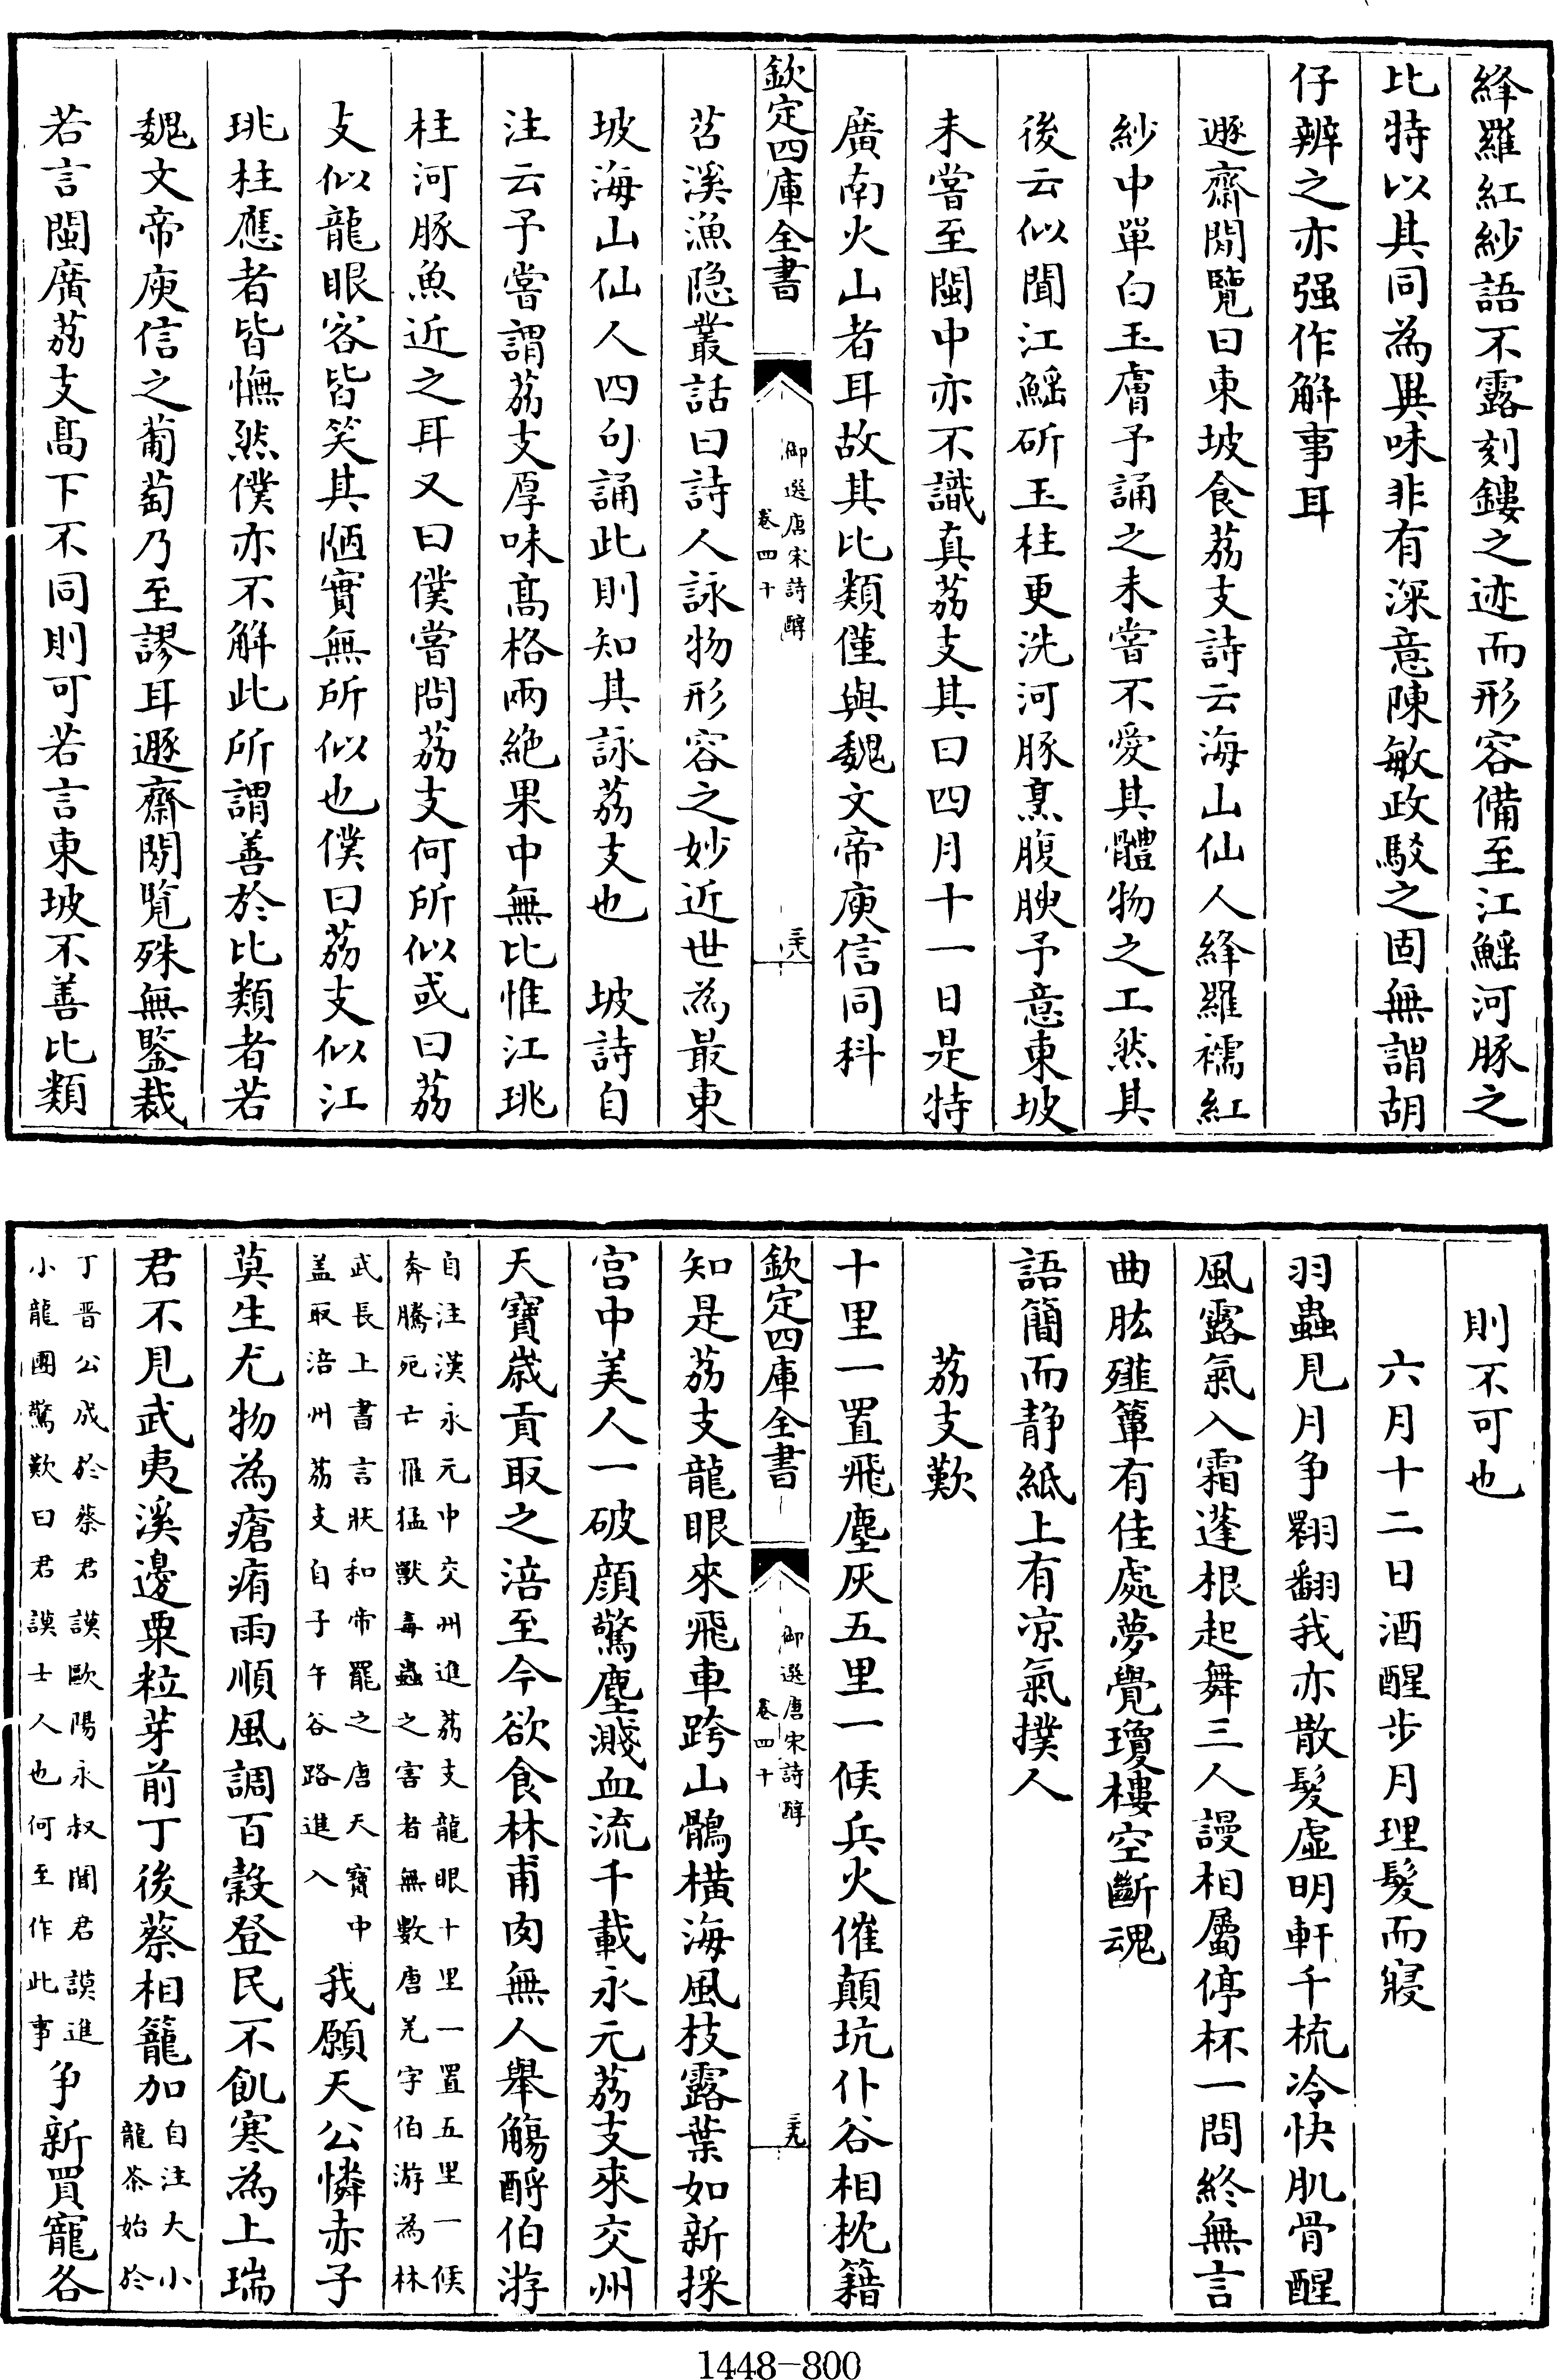 絳羅紅紗語不露刻鏤之迹而形容備至江鰩河豚之
比特以其同為異味非有深意陳敏政駁之固無謂胡
仔辨之亦强作解事耳
遯齋閒覽曰東坡食荔支詩云海山仙人絳羅襦紅
紗中單白玉膚予誦之未嘗不愛其體物之工然其
後云似聞江鰩斫玉柱更洗河豚烹腹腴予意東坡
未嘗至閩中亦不識真荔支其曰四月十一日是特
廣南火山者耳故其比類僅與魏文帝庾信同科
欽定四庫全書
御選唐宋詩醇
卷四十
三十八
苕溪漁隠叢話曰詩人詠物形容之妙近世為最東
坡海山仙人四句誦此則知其詠荔支也 坡詩自
注云予嘗謂荔支厚味髙格兩絶果中無比惟江珧
柱河豚魚近之耳又曰僕嘗問荔支何所似或曰荔
支似龍眼客皆笑其陋實無所似也僕曰荔支似江
珧柱應者皆憮然僕亦不解此所謂善於比類者若
魏文帝庾信之葡萄乃至謬耳遯齋閒覽殊無鑒裁
若言閩廣荔支髙下不同則可若言東坡不善比類
則不可也
六月十二日酒醒步月理髮而寢
羽蟲見月争翾翻我亦散髮虛明軒千梳冷快肌骨醒
風露氣入霜蓬根起舞三人謾相屬停杯一問終無言
曲肱薤簟有佳處夢覺瓊樓空斷魂
語簡而静紙上有凉氣撲人
荔支歎
十里一置飛塵灰五里一候兵火催顛坑仆谷相枕籍
知是荔支龍眼來飛車跨山鶻横海風枝露葉如新採
宫中美人一破顔驚塵濺血流千載永元荔支來交州
天寳嵗貢取之涪至今欲食林甫肉無人舉觴酹伯游
自注漢永元中交州進荔支龍眼十里一置五里一候
奔騰死亡罹猛獸毒蟲之害者無數唐羌字伯游為林
武長上書言狀和帝罷之唐天寳中
盖取涪州荔支自子午谷路進入
我願天公憐赤子
莫生尤物為瘡痏雨順風調百穀登民不飢寒為上瑞
君不見武夷溪邊粟粒芽前丁後蔡相籠加
自注大小
龍茶始於
丁晋公成於蔡君謨歐陽永叔聞君謨進
小龍團驚歎曰君謨士人也何至作此事
争新買寵各
欽定四庫全書
御選唐宋詩醇
卷四十
三十九
1448-800